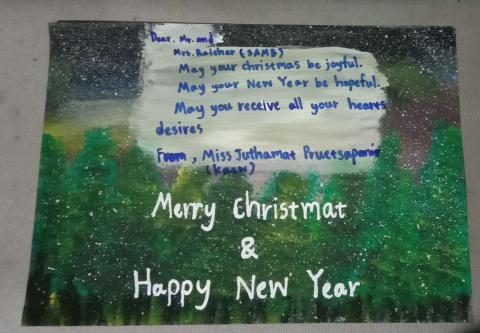 Dear. Mr. and
Mrs. Raicher (SAMB)
May your christmas be joyful.
May your New Year be hopeful.
May you receive all your hearts
desires
From, Miss Juthamat Pruetsapanir
(kaew)
Merry Christmat
&
Happy New Year